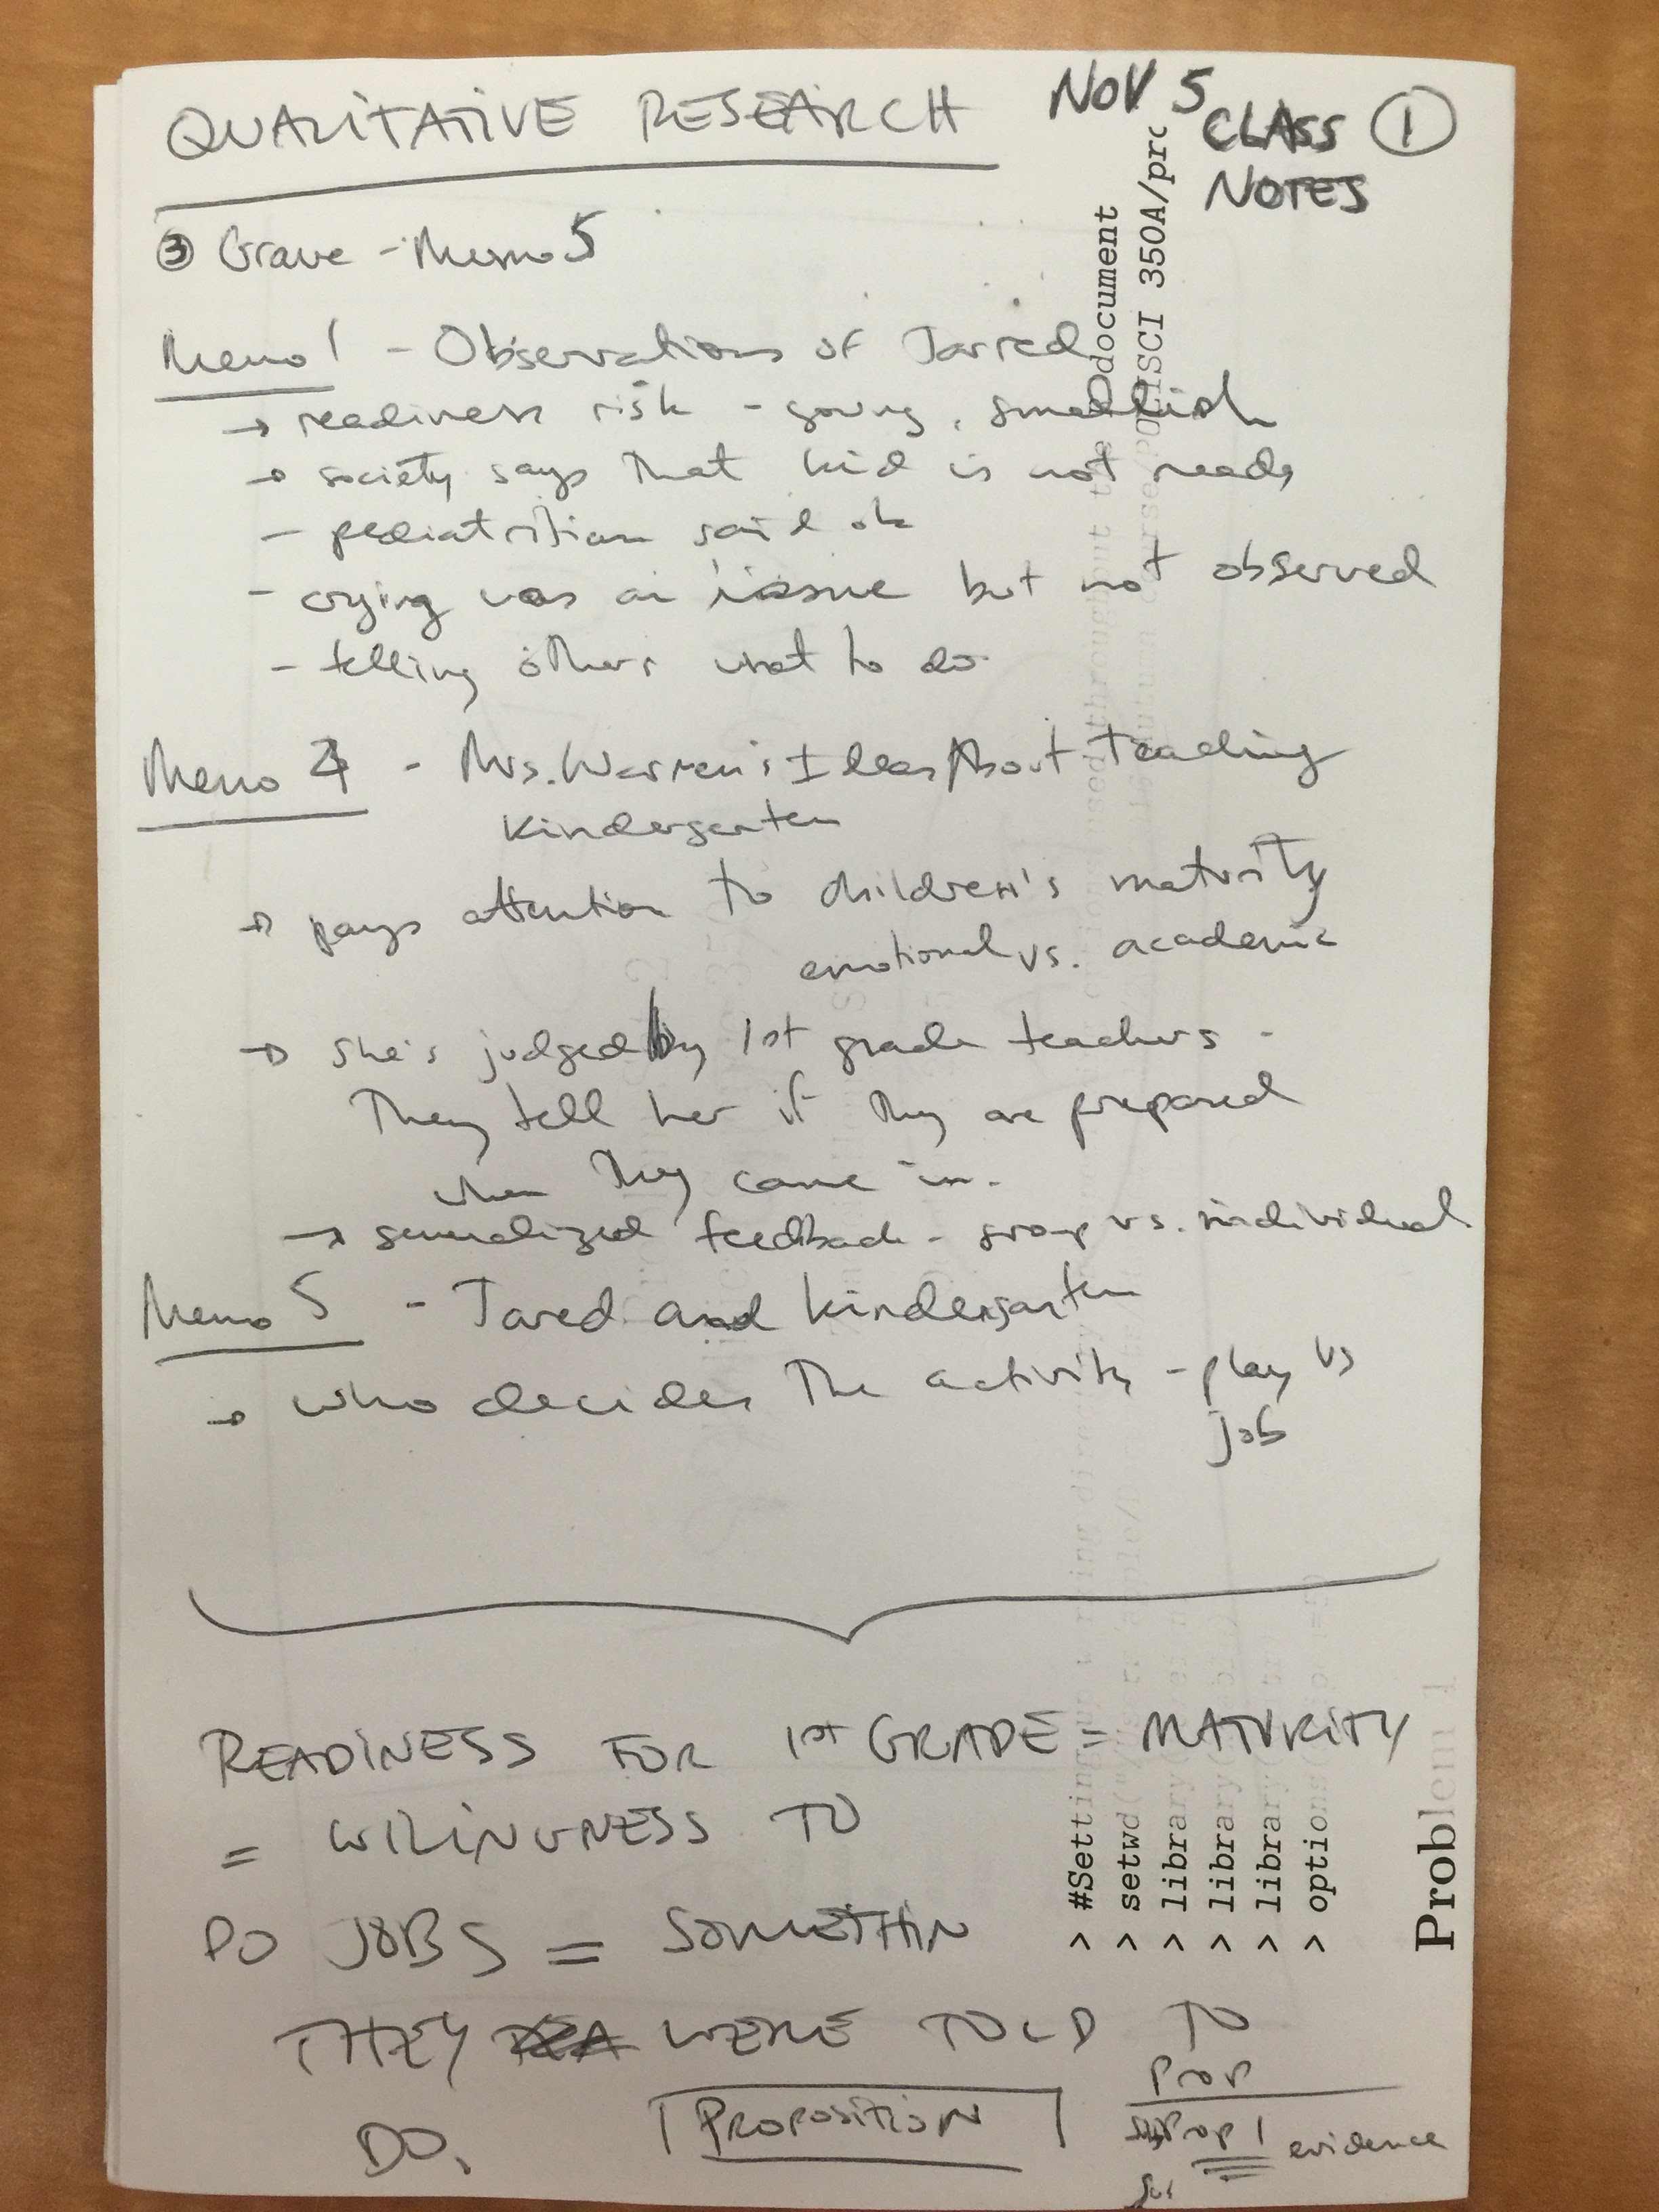 QUALITATIVE RESEARCH
NOV 5
CLASS
NOTES
1
3 Graue - Memo 5
Memo 1 - Observations of Jarred
→ readiness risk - young, smallish
→ society says that kid is not ready
- pediatritian said ok
- crying was an issue but not observed
- telling others what to do
Memo 4 - Mrs. Warren's Ideas About Teaching
Kindergarten
→ pays attention to children's maturity
emotional vs. academic
→ she's judged by 1st grade teachers -
They tell her if they are prepared
when they came in.
→ generalized feedback - group vs. individual
Memo 5 - Jared and kindergarten
→ who decides the activity - play vs
job
READINESS FOR 1st GRADE = MATURITY
= WILINGNESS TO
DO JOBS = SOMETHIN
THEY WERE TOLD TO
DO.
PROPOSITION
Prop
Prop 1 evidence
document
POLISCI 350A/pro
> #Setting
> setwd("
> library
> library
> library
> options
Problem 1